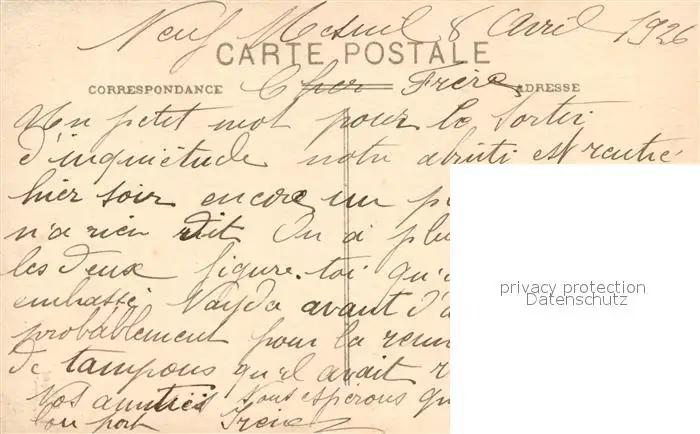 Neuf Mesnil 8 Avril 1926
CARTE POSTALE
CORRESPONDANCE
ADRESSE
Cher Frère
Un petit mot pour te sortir
d'inquiétude notre abruti est rentré
hier soir encore un p
n'a rien dit On a plu
les deux figure-toi qu'
embrassé Nayda avant d'a
probablement pour la rem
de tampons qu'el avait r
Vos amitiés Nous espérons qu
bon port Irène
privacy protection
Datenschutz